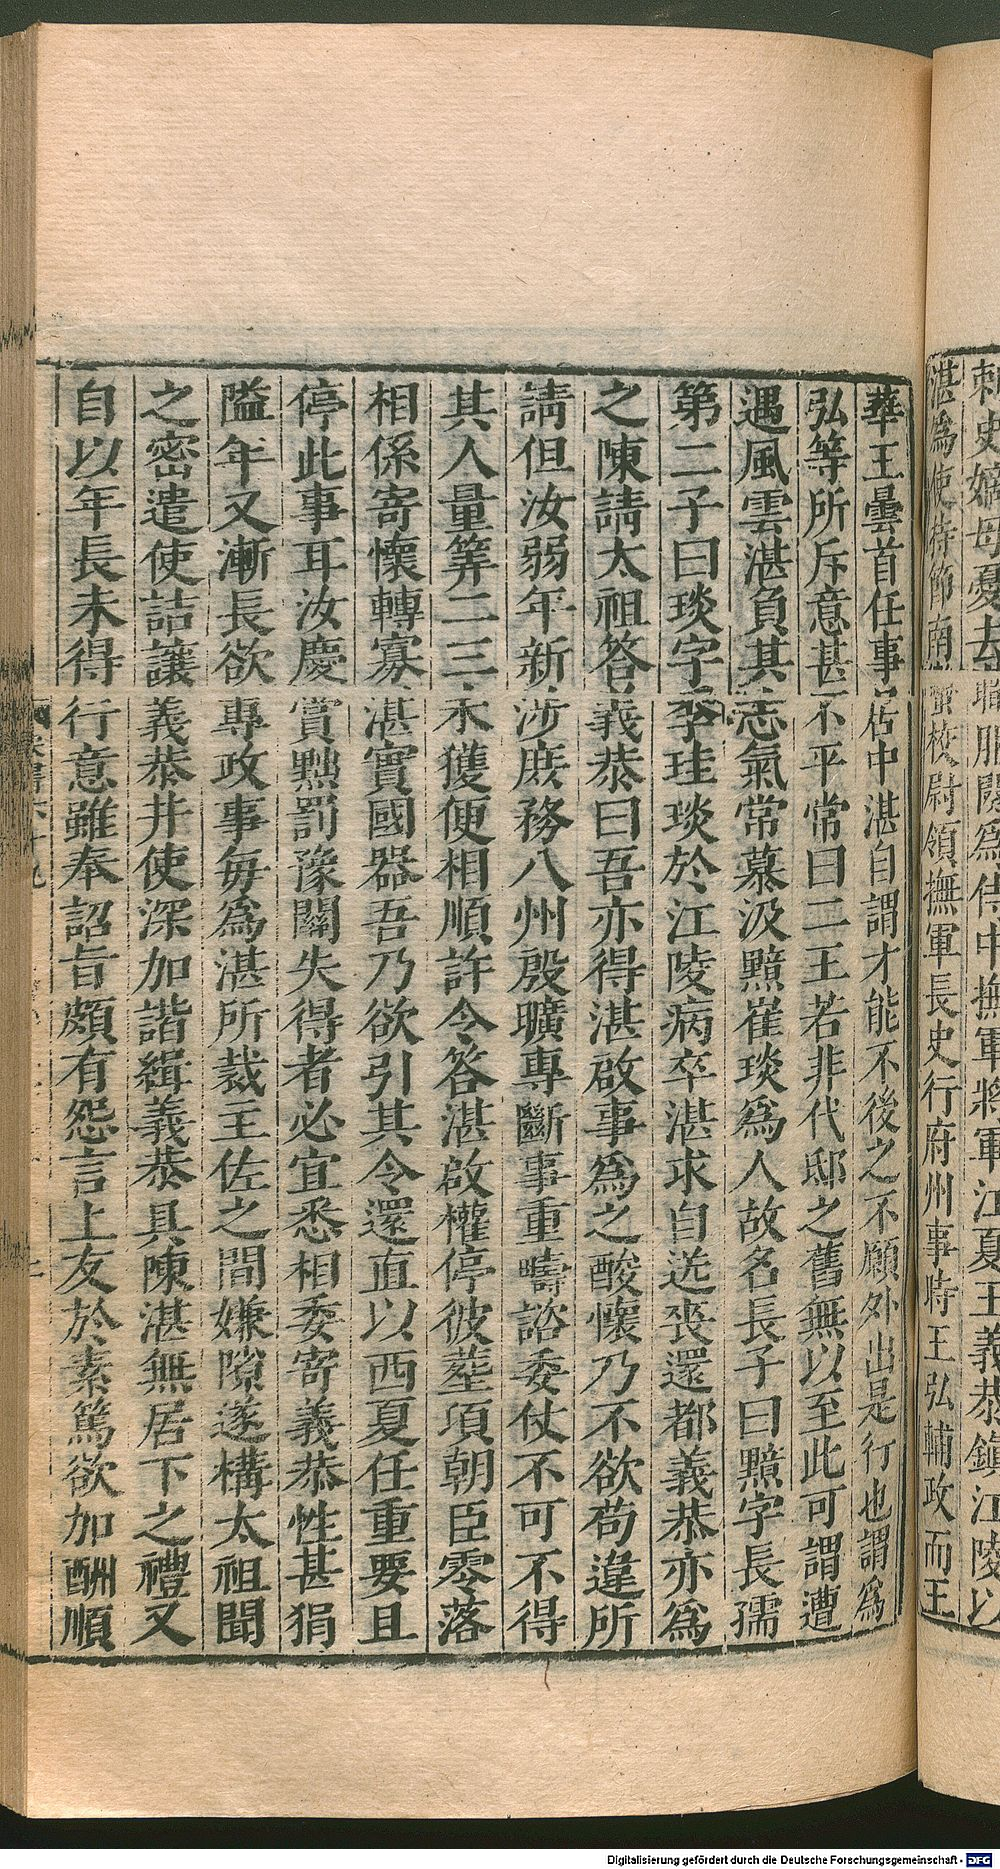 刺史嫡母憂去職服闋為侍中撫軍將軍江夏王義恭鎮江陵以
湛為使持節南蠻校尉領撫軍長史行府州事時王弘輔政而王
華王曇首任事居中湛自謂才能不後之不願外出是行也謂為
弘等所斥意甚不平常曰二王若非代邸之舊無以至此可謂遭
遇風雲湛負其志氣常慕汲黯崔琰為人故名長子曰黯字長孺
第二子曰琰字季珪琰於江陵病卒湛求自送喪還都義恭亦為
之陳請太祖答義恭曰吾亦得湛啟事為之酸懷乃不欲苟違所
請但汝弱年新涉庶務八州殷曠專斷事重疇諮委仗不可不得
其人量筭二三未獲便相順許今答湛啟權停彼塟項朝臣零落
相係寄懷轉寡湛實國器吾乃欲引其令還直以西夏任重要且
停此事耳汝慶賞黜罰豫關失得者必宜悉相委寄義恭性甚狷
隘年又漸長欲專政事每為湛所裁主佐之間嫌隙遂構太祖聞
之密遣使詰讓義恭并使深加諧緝義恭具陳湛無居下之禮又
自以年長未得行意雖奉詔旨頗有怨言上友於素篤欲加酬順
Digitalisierung gefördert durch die Deutsche Forschungsgemeinschaft - DFG